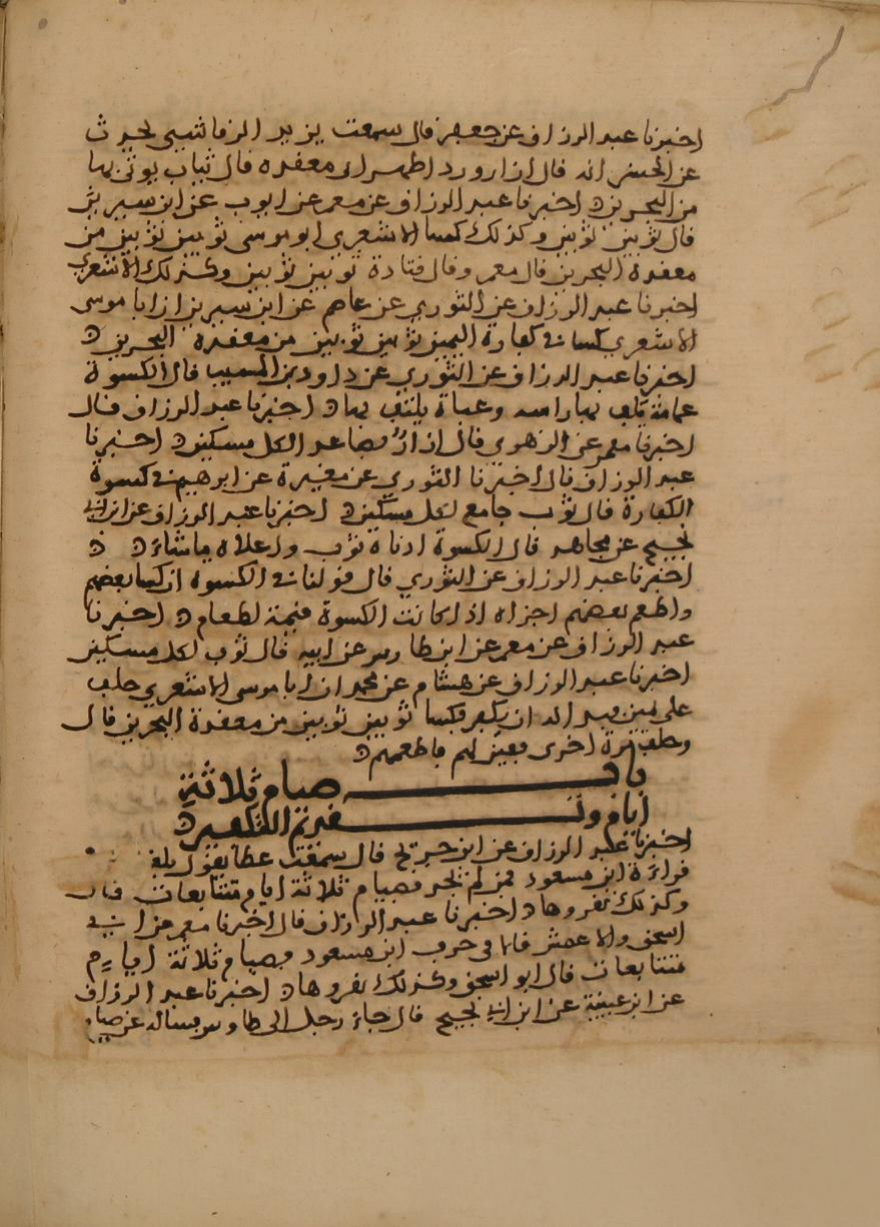 اخبرنا عبد الرزاق عن جعفر قال سمعت يزيد الرقاشي يحدث
عن الحسن انه قال ازار ورداء ظهراني معقدة قال ثياب يوتى بها
من البحرين اخبرنا عبد الرزاق عن معمر عن ايوب عن ابن سيرين
قال ثوبين ثوبين وكذلك كسا الاشعري ابو موسى ثوبين ثوبين من
معقدة البحرين قال معمر وقال قتادة ثوبين ثوبين وكذلك الاشعري
اخبرنا عبد الرزاق عن الثوري عن عاصم عن ابن سيرين ان ابا موسى
الاشعري كسا في كفارة اليمين ثوبين ثوبين من معقدة البحرين
اخبرنا عبد الرزاق عن الثوري عن داود بن المسيب قال الكسوة
عمامة يلف بها راسه وعباة يلتف بها اخبرنا عبد الرزاق قال
اخبرنا معمر عن الزهري قال ازار فصاعدا لكل مسكين اخبرنا
عبد الرزاق قال اخبرنا الثوري عن مغيرة عن ابرهيم في كسوة
الكفارة قال ثوب جامع لكل مسكين اخبرنا عبد الرزاق عن ابن ابي
نجيح عن مجاهد قال الكسوة ادناه ثوب واعلاه ما شاء
اخبرنا عبد الرزاق عن الثوري قال قولنا في الكسوة ان كسا بعضهم
واطعم بعضهم اجزاه اذا كانت الكسوة قيمة لطعام اخبرنا
عبد الرزاق عن معمر عن ابن طاوس عن ابيه قال ثوب لكل مسكين
اخبرنا عبد الرزاق عن هشام عن محمد ان ابا موسى الاشعري حلف
على يمين فبدا له ان يكفر فكسا ثوبين ثوبين من معقدة البحرين قال
وحلف مرة اخرى فعجن لهم فاطعمهم
باب صيام ثلاثة
ايام وتقديم التكفير
اخبرنا عبد الرزاق عن ابن جريج قال سمعت عطا يقول بلغنا
قراءة ابن مسعود فمن لم يجد فصيام ثلاثة ايام متتابعات قال
وكذلك نقروها اخبرنا عبد الرزاق قال اخبرنا معمر عن ابي
اسحق والاعمش قالا في حرف ابن مسعود فصيام ثلاثة ايام
متتابعات قال ابو اسحق وكذلك نقروها اخبرنا عبد الرزاق
عن ابن عيينة عن ابن ابي نجيح قال جاء رجل الى طاوس فساله عن صيام